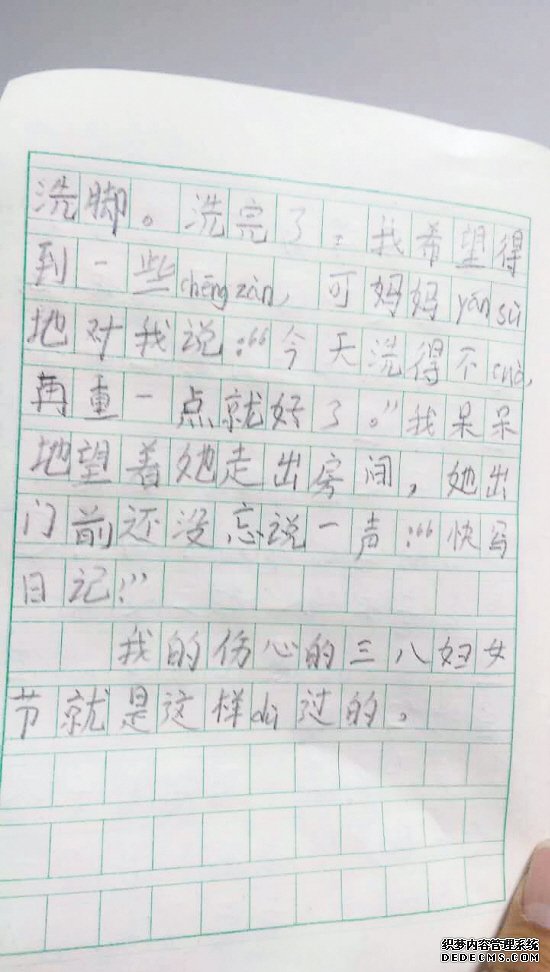 洗脚。洗完了，我希望得
到一些chēng zàn，可妈妈yán sù
地对我说：“今天洗得不cuò，
再重一点就好了。”我呆呆
地望着她走出房间，她出
门前还没忘说一声：“快写
日记！”
我的伤心的三八妇女
节就是这样dù过的。
织梦内容管理系统
DEDECMS.COM